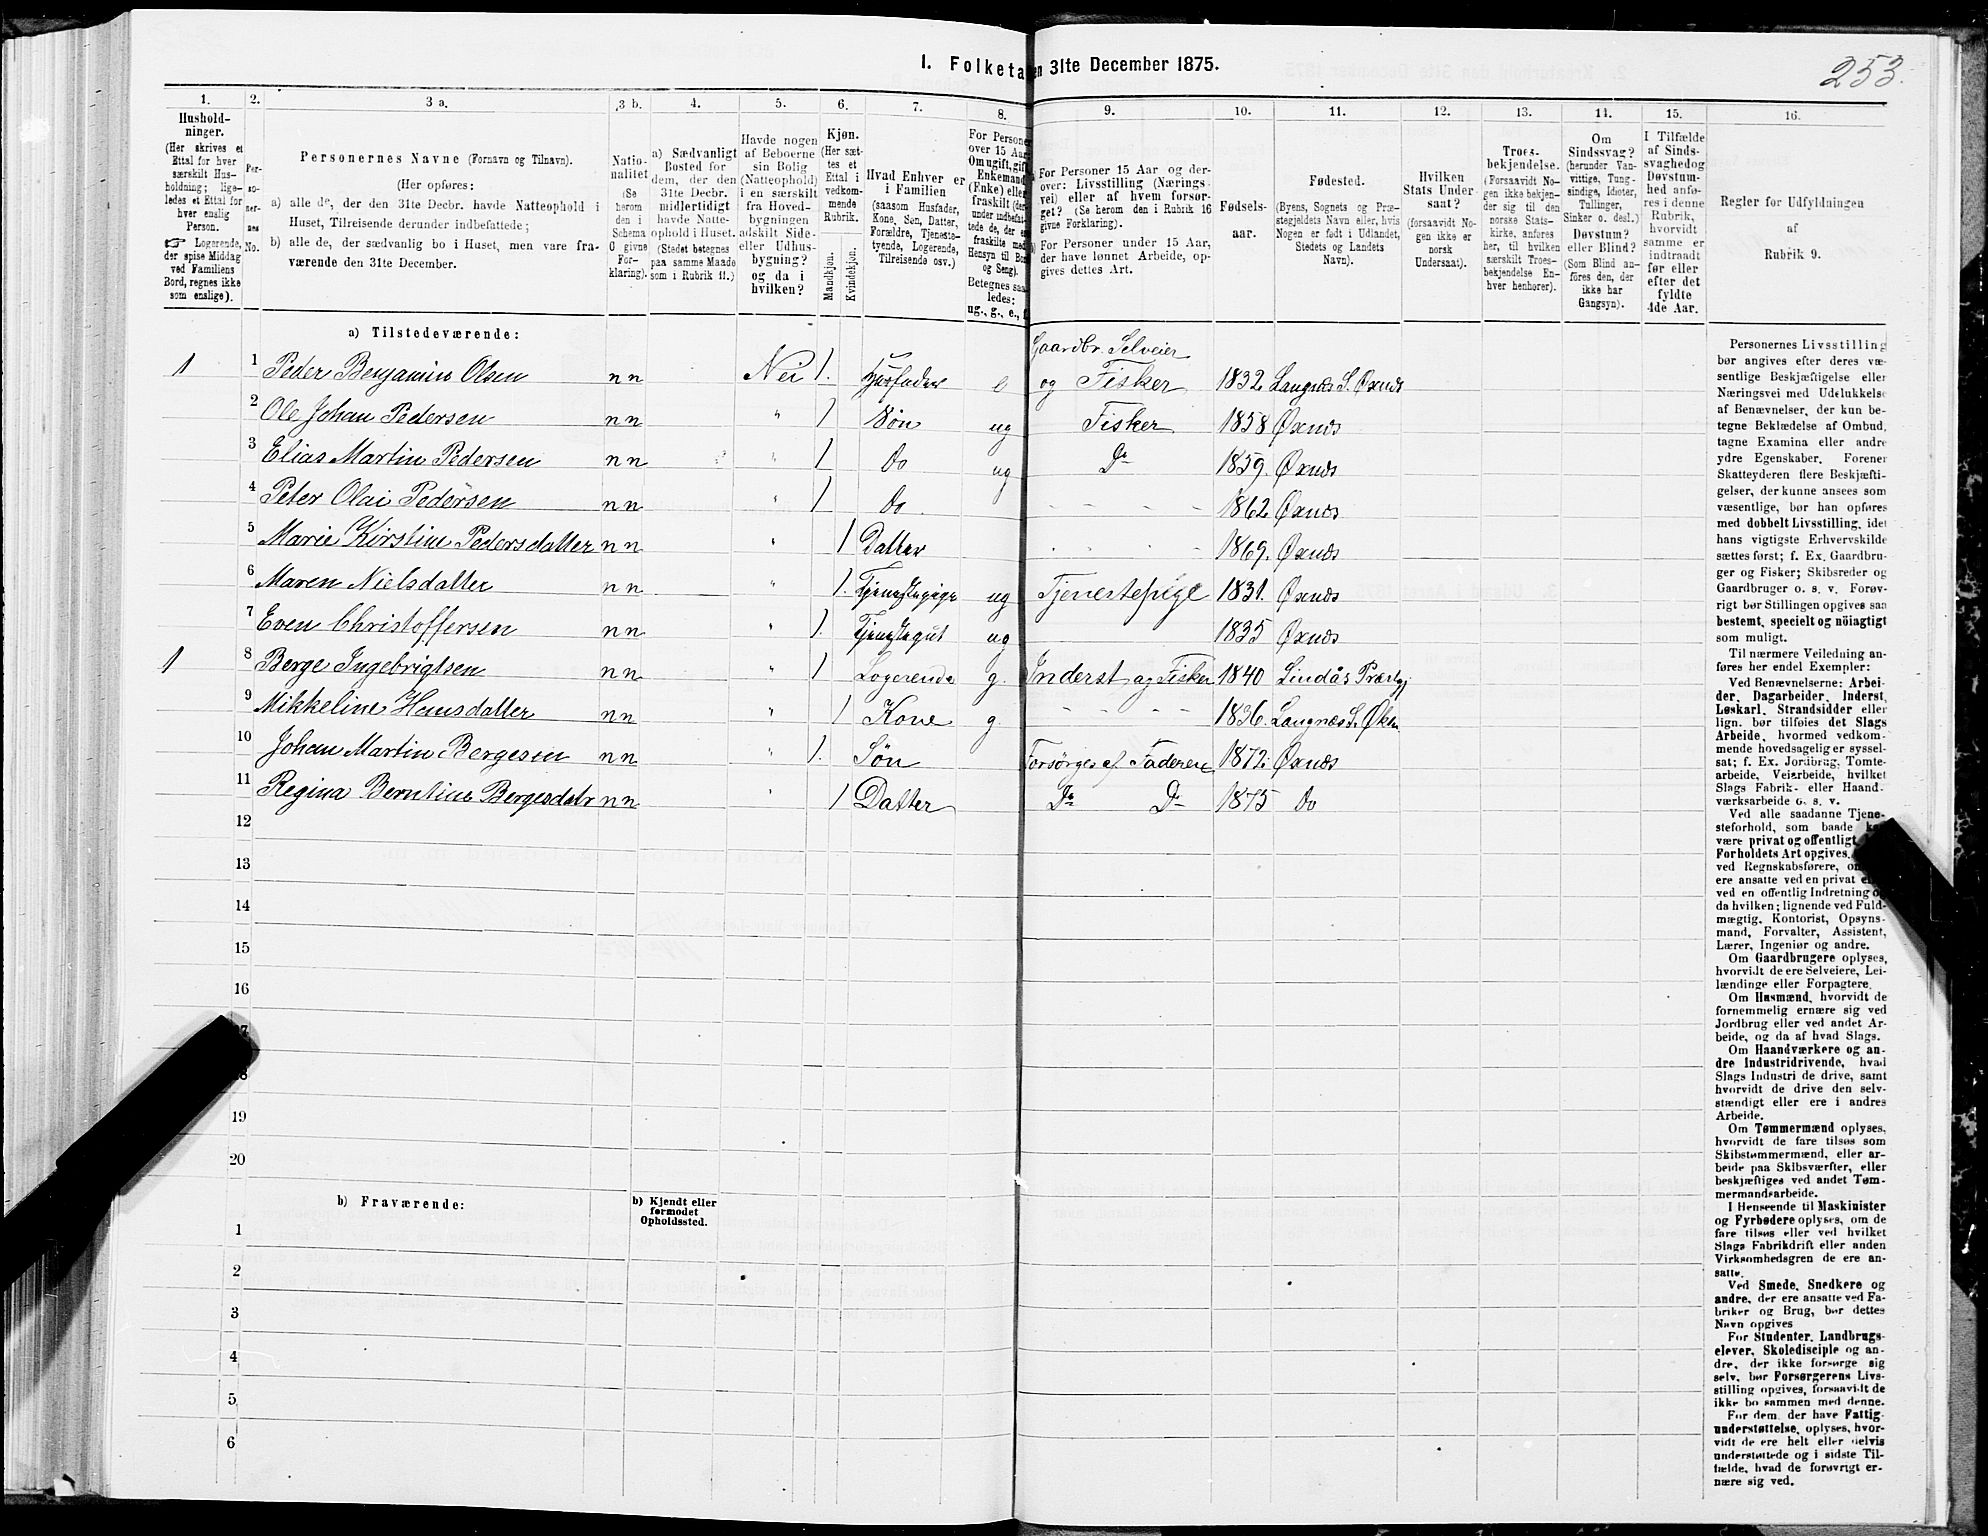 253.
1. Folketa en 31te December 1875.
1. 2. 3 a. 3 b. 4. 5. 6. 7. 8. 9. 10. 11. 12. 13. 14. 15. 16.
Hushold-
ninger.
(Her skrives et
Ettal for hver
særskilt Hus-
holdning; lige-
ledes et Ettal for
hver enslig
Person.
☞ Logerende,
der spise Middag
ved Familiens
Bord, regnes ikke
som enslige).
Per-
so-
ner-
nes
No.
Personernes Navne (Fornavn og Tilnavn).
(Her opføres:
a) alle de, der den 31te Decbr. havde Natteophold i
Huset, Tilreisende derunder indbefattede;
b) alle de, der sædvanlig bo i Huset, men vare fra-
værende den 31te December.
Natio-
nalitet
(Se
herom
den i
Schema
O givne
For-
klaring).
a) Sædvanligt
Bosted for
dem, der den
31te Decbr.
midlertidigt
havde Natte-
ophold i Huset.
(Stedet betegnes
paa samme Maade
som i Rubrik 11.)
Havde nogen
af Beboerne
sin Bolig
(Natteophold)
i en særskilt
fra Hoved-
bygningen
adskilt Side-
eller Udhus-
bygning?
og da i
hvilken?
Kjøn.
(Her sæt-
tes et
Ettal i
vedkom-
mende
Rubrik.
Mandkjøn.
Kvindekjøn.
Hvad Enhver er
i Familien
(saasom Husfader,
Kone, Søn, Datter,
Forældre, Tjeneste-
tyende, Logerende,
Tilreisende osv.)
For Persone
over 15 Aar
Om ugift, gift
Enkemand
(Enke) eller
fraskilt (der
under indbefat-
tede de, der e
fraskilte med
Hensyn til Bo
og Seng).
Betegnes saa
ledes:
ug., g., e., f.
For Personer 15 Aar og der-
over: Livsstilling (Nærings-
vei) eller af hvem forsør-
get? (Se herom den i Rubrik 16
givne Forklaring).
For Personer under 15 Aar,
der have lønnet Arbeide, op-
gives dettes Art.
Fødsels-
aar.
Fødested.
(Byens, Sognets og Præ-
stegjeldets Navn eller, hvis
Nogen er født i Udlandet,
Stedets og Landets
Navn).
Hvilken
Stats Under-
saat?
(forsaavidt No-
gen ikke er
norsk
Undersaat).
Troes-
bekjendelse.
(Forsaavidt No-
gen ikke bekjen-
der sig til den
norske Stats-
kirke, anføres
her, til hvilken
særskilt Troes-
bekjendelse En-
hver henhører).
Om
Sindssvag?
(herunder Van-
vittige, Tung-
sindige, Idioter,
Tullinger,
Sinker o. desl.)
Døvstum?
eller Blind?
(Som Blind an-
føres den, der
ikke har
Gangsyn).
I Tilfælde
af Sinds-
svaghed og
Døvstum-
hed anfø-
res i denne
Rubrik,
hvorvidt
samme er
indtraadt
før eller
efter det
fyldte
4de Aar.
Regler for Udfyldningen
af
Rubrik 9.
a) Tilstedeværende:
1 1 Peder Benjamin Olsen nn Nei 1. Husfader e Gaardbr. Selveier og Fisker 1832 Langnes S. Øxnes
2 Ole Johan Pedersen nn " 1 Søn ug Fisker 1858 Øxnes
3 Elias Martin Pedersen nn " 1 do ug Do 1859. Øxnes
4 Peter Olai Pedersen nn " 1 do - - - - 1862 Øxnes
5 Marie Kirstine Pedersdatter nn " 1 Datter - - - - 1869. Øxnes
6 Maren Nielsdatter nn " 1. Tjenestepige ug Tjenestepige 1831. Øxnes
7 Even Christoffersen nn " 1. Tjenestegut ug 1835 Øxnes
1 8 Berge Ingebrigtsen nn " 1 Logerende g. Inderst og Fisker 1840 Lindås Præstgj
9 Mikkeline Hansdatter nn " 1 Kone g. - - - - 1836. Langnæs S. Øxn
10 Johan Martin Bergesen nn " 1. Søn Forsørges af Faderen 1872. Øxnes
11 Regina Berntine Bergesdatr nn " 1 Datter Do Do 1875 do
12
13
14
15
16
17
18
19
20
b) Fraværende: b) Kjendt eller
formodet
Opholdssted.
1
2
3
4
5
6
Personernes Livsstilling
bør angives efter deres væ-
sentlige Beskjæftigelse eller
Næringsvei med Udelukkelse
af Benævnelser, der kun be-
tegne Beklædelse af Ombud,
tagne Examina eller andre
ydre Egenskaber. Forener
Skatteyderen flere Beskjæfti-
gelser, der kunne ansees som
væsentlige, bør han opføres
med dobbelt Livsstilling, idet
hans vigtigste Erhvervskilde
sættes først; f. Ex. Gaardbru-
ger og Fisker; Skibsreder og
Gaardbruger o. s. v. Forøv-
rigt bør Stillingen opgives saa
bestemt, specielt og nöiagtigt
som muligt.
Til nærmere Veiledning an-
føres her endel Exempler:
Ved Benævnelserne: Arbei-
der, Dagarbeider, Inderst,
Løskarl, Strandsidder eller
lign. bør tilføies det Slags
Arbeide, hvormed vedkom-
mende hovedsagelig er syssel-
sat; f. Ex. Jordbrug, Tomte-
arbeide, Veiarbeide, hvilket
Slags Fabrik- eller Haand-
værksarbeide o. s. v.
Ved alle saadanne Tjene-
steforhold, som baade k
være privat og offentligt,
Forholdets Art opgives,
ved Regnskabsførere, o
ere ansatte ved en privat e
ved en offentlig Indretning o
da hvilken; lignende ved Fuld-
mægtig, Kontorist, Opsyns-
mand, Forvalter, Assistent,
Lærer, Ingeniør og andre.
Om Gaardbrugere oplyses,
hvorvidt de ere Selveiere, Lei-
lændinge eller Forpagtere.
Om Husmænd, hvorvidt de
fornemmelig ernære sig ved
Jordbrug eller ved andet Ar-
beide, og da af hvad Slags.
Om Haandværkere og an-
dre Industridrivende, hvad
Slags Industri de drive, samt
hvorvidt de drive den selv-
stændigt eller ere i andres
Arbeide.
Om Tømmermænd oplyses,
hvorvidt de fare tilsøs som
Skibstømmermænd, eller ar-
beide paa Skibsværfter, eller
beskjæftiges ved andet Tøm-
mermandsarbeide.
I Henseende til Maskinister
og Fyrbødere oplyses, om de
fare tilsøs eller ved hvilket
Slags Fabrikdrift eller anden
Virksomhedsgren de ere an-
satte.
Ved Smede, Snedkere og
andre, der ere ansatte ved Fa-
briker og Brug, bør dettes
Navn opgives
For Studenter, Landbrugs-
elever, Skoledisciple og an-
dre, der ikke forsørge sig
selv, bør Forsørgerens Livs-
stilling opgives, forsaavidt de
ikke bo sammen med denne.
For dem, der have Fattig-
understøttelse, oplyses, hvor-
vidt de ere helt eller delvis
understøttede og i sidste Til-
fælde, hvad de forøvrigt er-
nære sig ved.